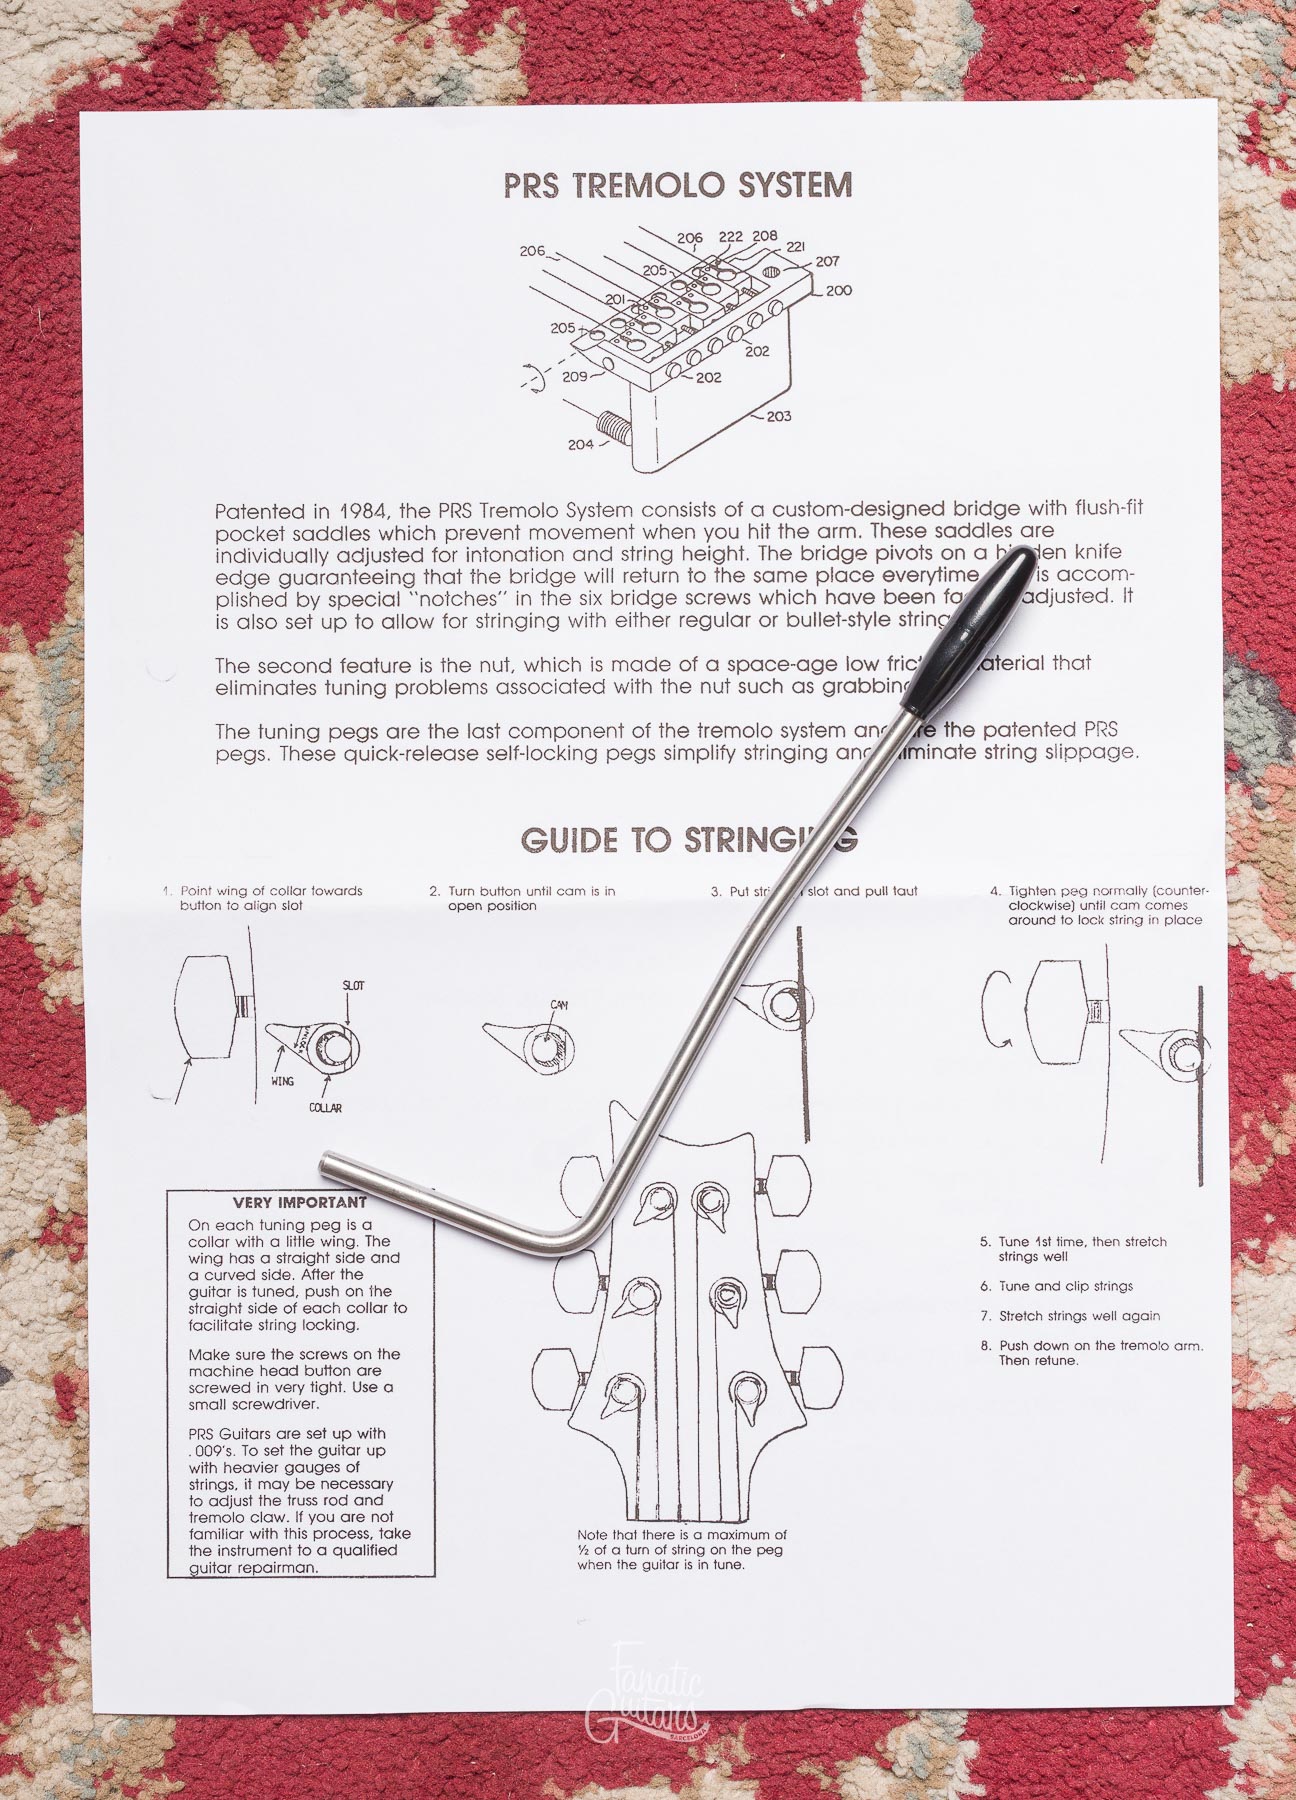 PRS TREMOLO SYSTEM
206 222 208
206 221
205 207
201 200
205
202
209 202
203
204
Patented in 1984, the PRS Tremolo System consists of a custom-designed bridge with flush-fit
pocket saddles which prevent movement when you hit the arm. These saddles are
individually adjusted for intonation and string height. The bridge pivots on a knife
edge guaranteeing that the bridge will return to the same place everytime is accom-
plished by special "notches" in the six bridge screws which have been adjusted. It
is also set up to allow for stringing with either regular or bullet-style
The second feature is the nut, which is made of a space-age low that
eliminates tuning problems associated with the nut such as
The tuning pegs are the last component of the tremolo system the patented PRS
pegs. These quick-release self-locking pegs simplify stringing string slippage.
GUIDE TO STRINGING
1. Point wing of collar towards
button to align slot
2. Turn button until cam is in
open position
3. Put slot and pull taut
4. Tighten peg normally (counter-
clockwise) until cam comes
around to lock string in place
SLOT
WING
COLLAR
CAM
VERY IMPORTANT
On each tuning peg is a
collar with a little wing. The
wing has a straight side and
a curved side. After the
guitar is tuned, push on the
straight side of each collar to
facilitate string locking.
Make sure the screws on the
machine head button are
screwed in very tight. Use a
small screwdriver.
PRS Guitars are set up with
.009's. To set the guitar up
with heavier gauges of
strings, it may be necessary
to adjust the truss rod and
tremolo claw. If you are not
familiar with this process, take
the instrument to a qualified
guitar repairman.
5. Tune 1st time, then stretch
strings well
6. Tune and clip strings
7. Stretch strings well again
8. Push down on the tremolo arm.
Then retune.
Note that there is a maximum of
½ of a turn of string on the peg
when the guitar is in tune.
Fanatic
Guitars
BARCELONA